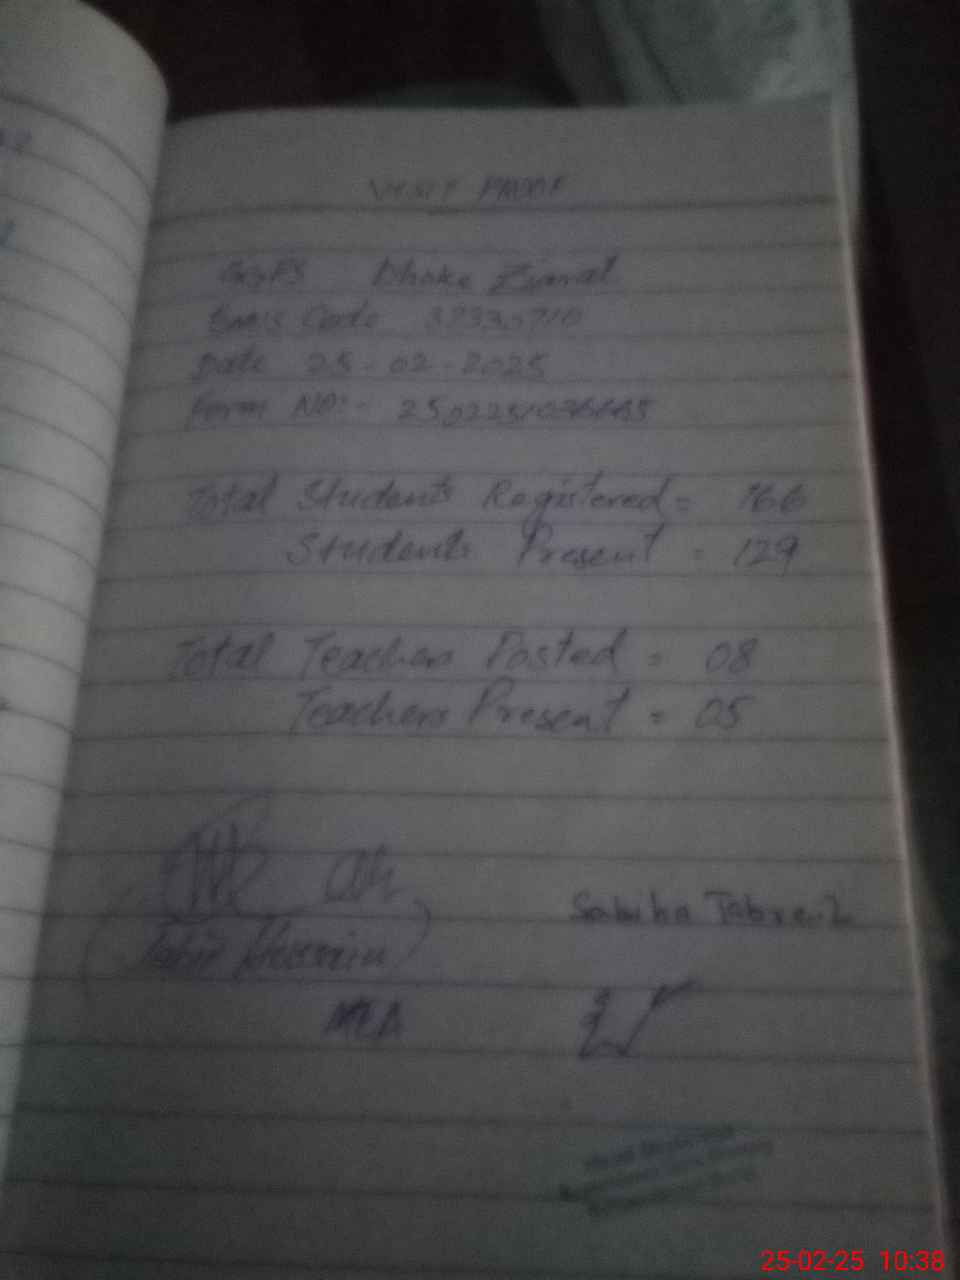 VISIT PROOF
GGPS Dhoke Ziarat
Emis Code 37330710
Date 25-02-2025
Form NO:-
Total Students Registered = 166
Students Present = 129
Total Teachers Posted = 08
Teachers Present = 05
Sabiha Tabreez
Hussain
MEA
25-02-25 10:38